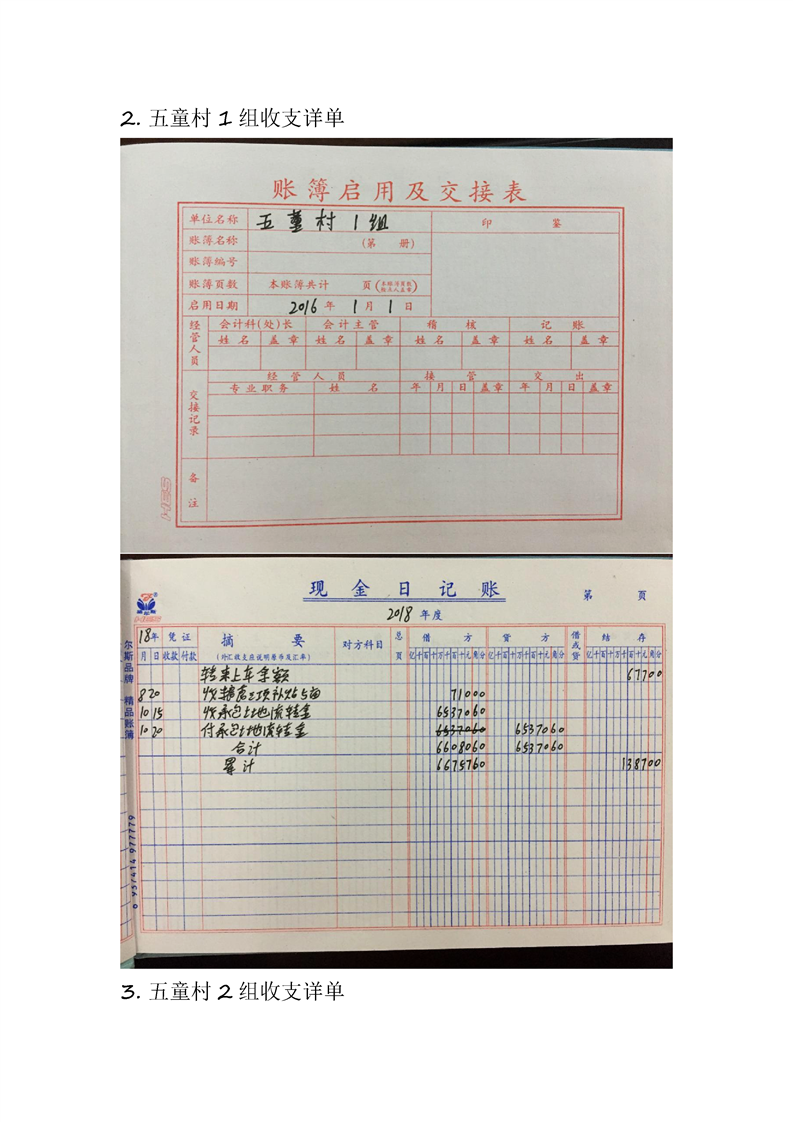 2. 五童村 1 组收支详单
账簿启用及交接表
单位名称 五董村1组 印 鉴
账簿名称 (第 册)
账簿编号
账簿页数 本账簿共计 页(本账簿页数 盖章)
启用日期 2016 年 1 月 1 日
经管人员 会计科(处)长 会计主管 稽 核 记 账
姓 名 盖 章 姓 名 盖 章 姓 名 盖 章 姓 名 盖 章
交接记录 经 管 人 员 接 管 交 出
专业职务 姓 名 年 月 日 盖章 年 月 日 盖章
备注
现 金 日 记 账
第 页
2018 年度
18年 凭 证 摘 要 对方科目 总页 借 方 贷 方 借或贷 结 存
月 日 收款 付款 (外汇收支应说明原币及汇率) 亿千百十万千百十元角分 亿千百十万千百十元角分 亿千百十万千百十元角分
转来上年余额 67700
8 20 收 三项补贴 71000
10 15 收承包土地流转金 6537060
10 20 付承包土地流转金 6537060 6537060
合计 6608060 6537060
累计 6675760 138700
尔斯品牌 精品账簿
937414 977779
3. 五童村 2 组收支详单